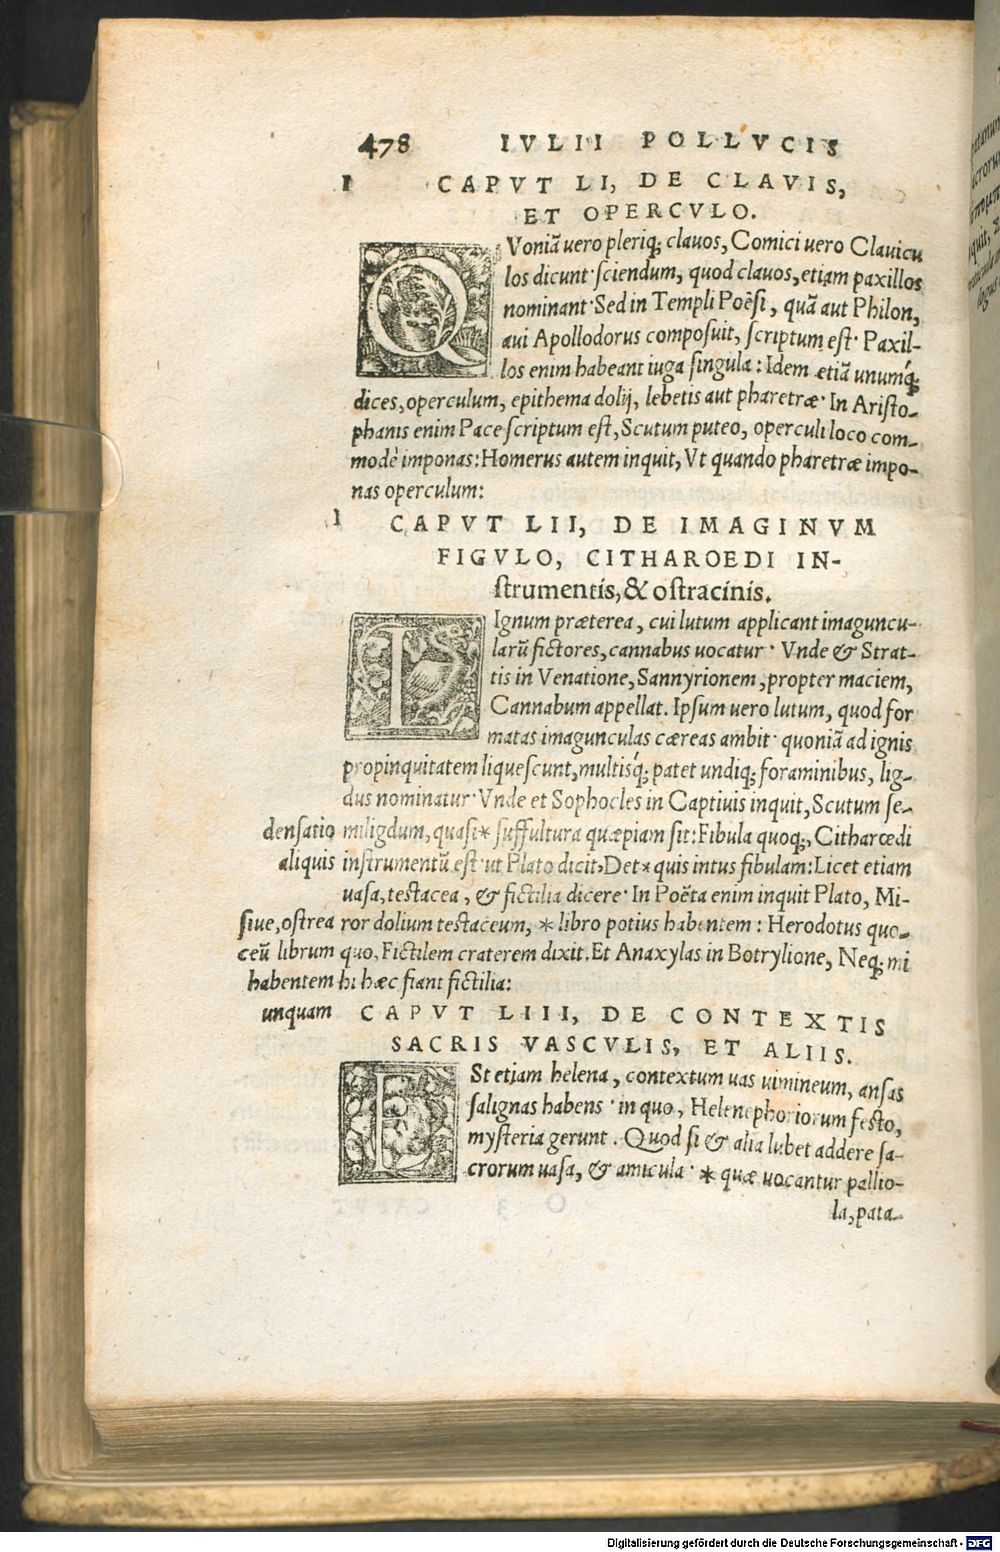 478 IVLII POLLVCIS
CAPVT LI, DE CLAVIS,
ET OPERCVLO.
QVoniã uero pleriq; clauos, Comici uero Clauicu
los dicunt· sciendum, quod clauos, etiam paxillos
nominant· Sed in Templi Poësi, quã aut Philon,
aui Apollodorus composuit, scriptum est· Paxil-
los enim habeant iuga singula: Idem etiã unumq́;
dices, operculum, epithema dolij, lebetis aut pharetræ· In Aristo-
phanis enim Pace scriptum est, Scutum puteo, operculi loco com-
modè imponas: Homerus autem inquit, Vt quando pharetræ impo-
nas operculum:
CAPVT LII, DE IMAGINVM
FIGVLO, CITHAROEDI IN-
strumentis, & ostracinis.
LIgnum præterea, cui lutum applicant imaguncu-
larũ fictores, cannabus uocatur· Vnde & Strat-
tis in Venatione, Sannyrionem, propter maciem,
Cannabum appellat. Ipsum uero lutum, quod for
matas imagunculas cæreas ambit· quoniã ad ignis
propinquitatem liquescunt, multisq́; patet undiq; foraminibus, lig-
dus nominatur· Vnde et Sophocles in Captiuis inquit, Scutum se-
densatio miligdum, quasi* suffultura quæpiam sit: Fibula quoq;, Citharœdi
aliquis instrumentũ est· ut Plato dicit, Det* quis intus fibulam: Licet etiam
uasa, testacea, & fictilia dicere· In Poëta enim inquit Plato, Mi-
siue, ostrea ror dolium testaceum, * libro potius habentem: Herodotus quo-
ceũ librum quo, Fictilem craterem dixit. Et Anaxylas in Botrylione, Neq; mi
habentem hi hæc fiant fictilia:
unquam CAPVT LIII, DE CONTEXTIS
SACRIS VASCVLIS, ET ALIIS.
ESt etiam helena, contextum uas uimineum, ansas
salignas habens· in quo, Helenephoriorum festo,
mysteria gerunt. Quod si & alia lubet addere sa-
crorum uasa, & amicula· * quæ uocantur pallio-
la, pata-
Digitalisierung gefördert durch die Deutsche Forschungsgemeinschaft - DFG